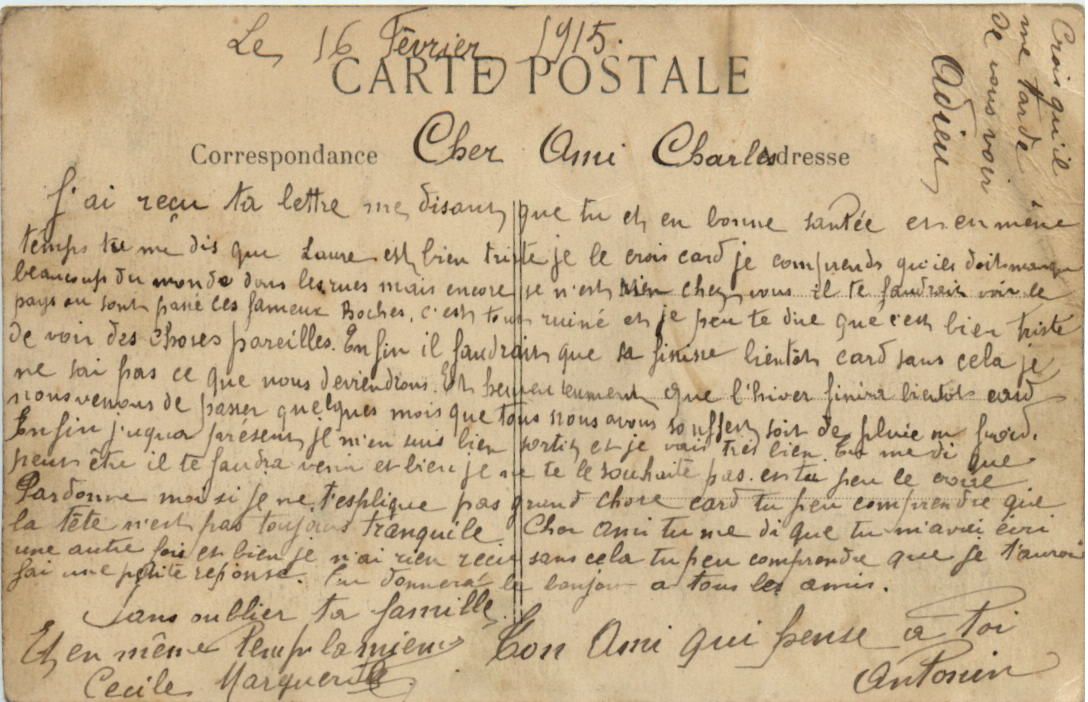 Le 16 Février 1915.
CARTE POSTALE
Correspondance
Adresse
Cher Ami Charles
J'ai reçu ta lettre me disant que tu et en bonne santée et en même
temps tu me dis que Laure est bien triste je le crois card je comprends qu'ils doit manque
beaucoup du monde dans les rues mais encore se n'est rien chez vous il te faudrait voir le
pays ou sont passé ces fameux Boches, c'est tout ruiné et je peu te dire que c'est bien triste
de voir des choses pareilles. Enfin il faudrait que sa finisse bientôt card sans cela je
ne sai pas ce que nous deviendrions. Et heureusement que l'hiver finira bientôt card
nous venons de passer quelques mois que tous nous avons souffert soit de pluie ou froid.
Enfin jusqua présent je m'en suis bien sortit et je vais très bien. Tu me di que
peut être il te faudra venir et bien je ne te le souhaite pas. en tu peu le croire
Pardonne moi si je ne t'esplique pas grand chose card tu peu comprendre que
la tête n'est pas toujours tranquile. Cher Ami tu me di que tu m'avai écri
une autre fois et bien je n'ai rien reçu sans cela tu peu comprendre que je t'aurai
fai une petite réponse. Tu donnera le bonjour a tous les amis.
Sans oublier ta famille
Et en même temps la mienne
Cecile Marguerite
Ton Ami qui pense a toi
Antonin
Crois qu'il
me tarde
de vous voir
Adieu